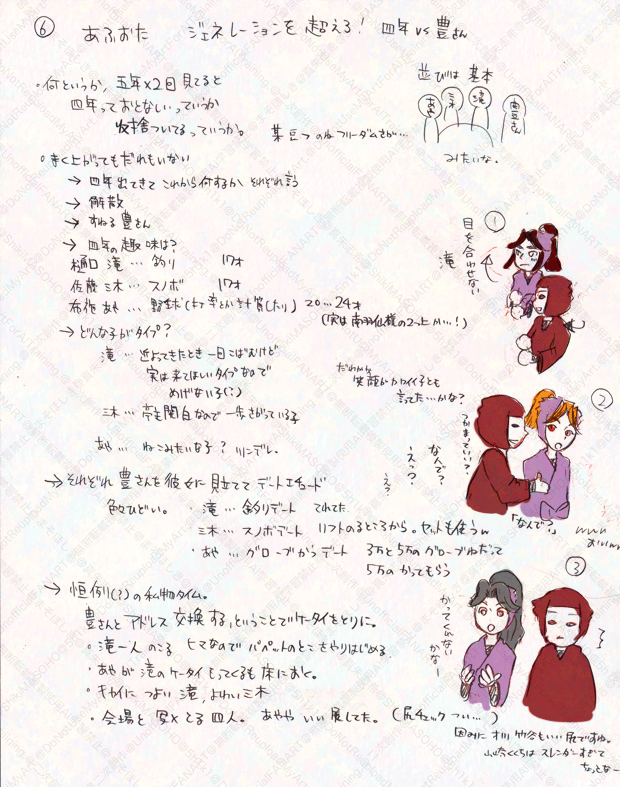 ⑥ あふおた ジェネレーションを超えろ! 四年 vs 豊さん
・何というか、五年×2日 見てると
四年っておとない、っていうか
場捨ついてるっていうか。
某豆つのねフリーダムさが…
並びは 基本
あ 三木 滝 豊さん
みたいな。
○まく上がってもだれもいない
→ 四年出てきて これから何するか それぞれ言う
→ 解散
→ すねる 豊さん
→ 四年の趣味は?
樋口 滝 … 釣り 17才
佐藤 三木 … スノボ 17才
布施 あや … 野球 20…24才
(実は 南羽仙様の2つ上か…!)
→ どんな子がタイプ?
滝 … 近よってきたとき 一回こばむけど
実は来てほしいタイプなので
めげない子(?)
三木 … 亭主関白なので 一歩さがっている子
あや … ねこみたいな子? ツンデレ。
だれかが
笑顔がカワイイ子とも
言ってた…かな?
→ それぞれ 豊さんを彼女に見立てて デートエチュード
色々ひどい。
・滝 … 釣りデート てれてた
三木 … スノボデート リフトのるところから。セットも使うw
・あや … グローブからデート 3万と5万のグローブねだって
5万のかってもらう
→ 恒例(?)の私物タイム。
豊さんと アドレス 交換する、ということでケータイをとりに。
・滝一人のこる ヒマなので パペットのとこをやりはじめる
・あやが 滝のケータイもってくるも 床におく。
・キカイに つよい 滝、よわい三木
・会場を 写メとる 四人。 あやや いい尻してた。 (尻チェック つい…)
因みに 竹谷もいい尻ですね。
スレンダーすぎて
ちょっとなー
①
目を合わせない
滝
②
つかまっていい?
なんで?
えっ?
え?
「なんで?」
www
③
かってくれない
かなー